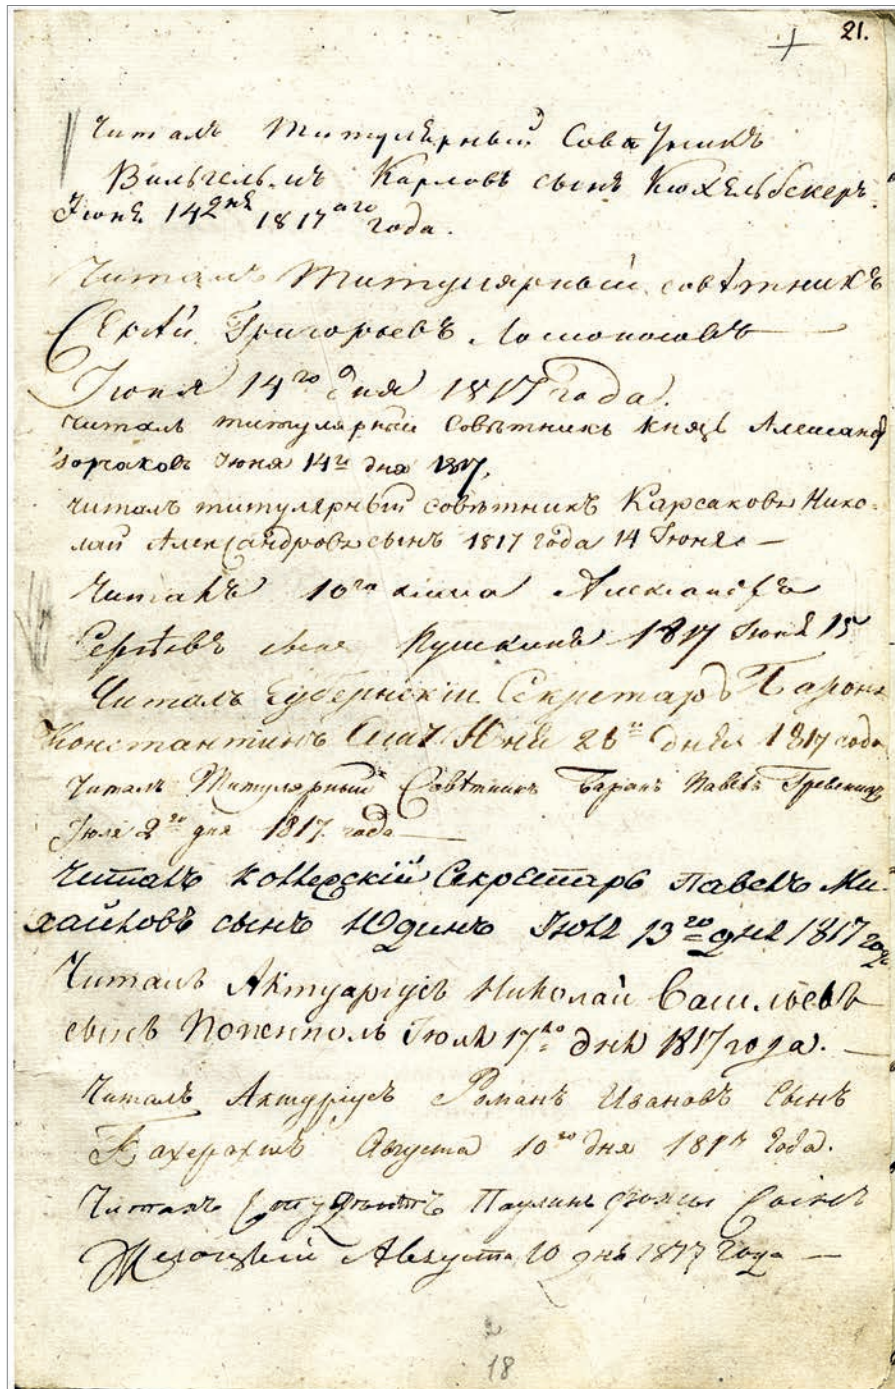 21.
Читалъ Титулярный Совѣтникъ
Вильгельмъ Карловъ сынъ Кюхельбекеръ.
Іюня 14 дня 1817 аго года.
Читалъ Титулярный совѣтникъ
Сергѣй Григорьевъ Ломоносовъ
Іюня 14го дня 1817 года.
Читалъ титулярный Совѣтникъ Князь Александ
Горчаковъ Іюня 14го дня 1817.
Читалъ титулярный совѣтникъ Карсаковъ Нико-
лай Александровъ сынъ 1817 года 14 Іюня. —
Читалъ 10го класса Александръ
Сергѣевъ сынъ Пушкинъ 1817 Іюня 15
Читалъ Губернскій Секретарь Баронъ
Константинъ Юня 28го дня 1817 года
Читалъ Титулярный Совѣтникъ Баронъ Павелъ Гревеницъ
Іюля 2го дня 1817. года —
Читалъ Коллежскій Секретарь Павелъ Ми-
хайловъ сынъ Юдинъ Іюля 13го дня 1817 года
Читалъ Актуаріусъ Николай Васильевъ
сынъ Іюля 17го дня 1817 года. —
Читалъ Актуріусъ Романъ Ивановъ Сынъ
Бахерахтъ Августа 10го дня 1817 года.
Читалъ Студентъ Паулинъ Сынъ
Августа 10 дня 1817 года —
18